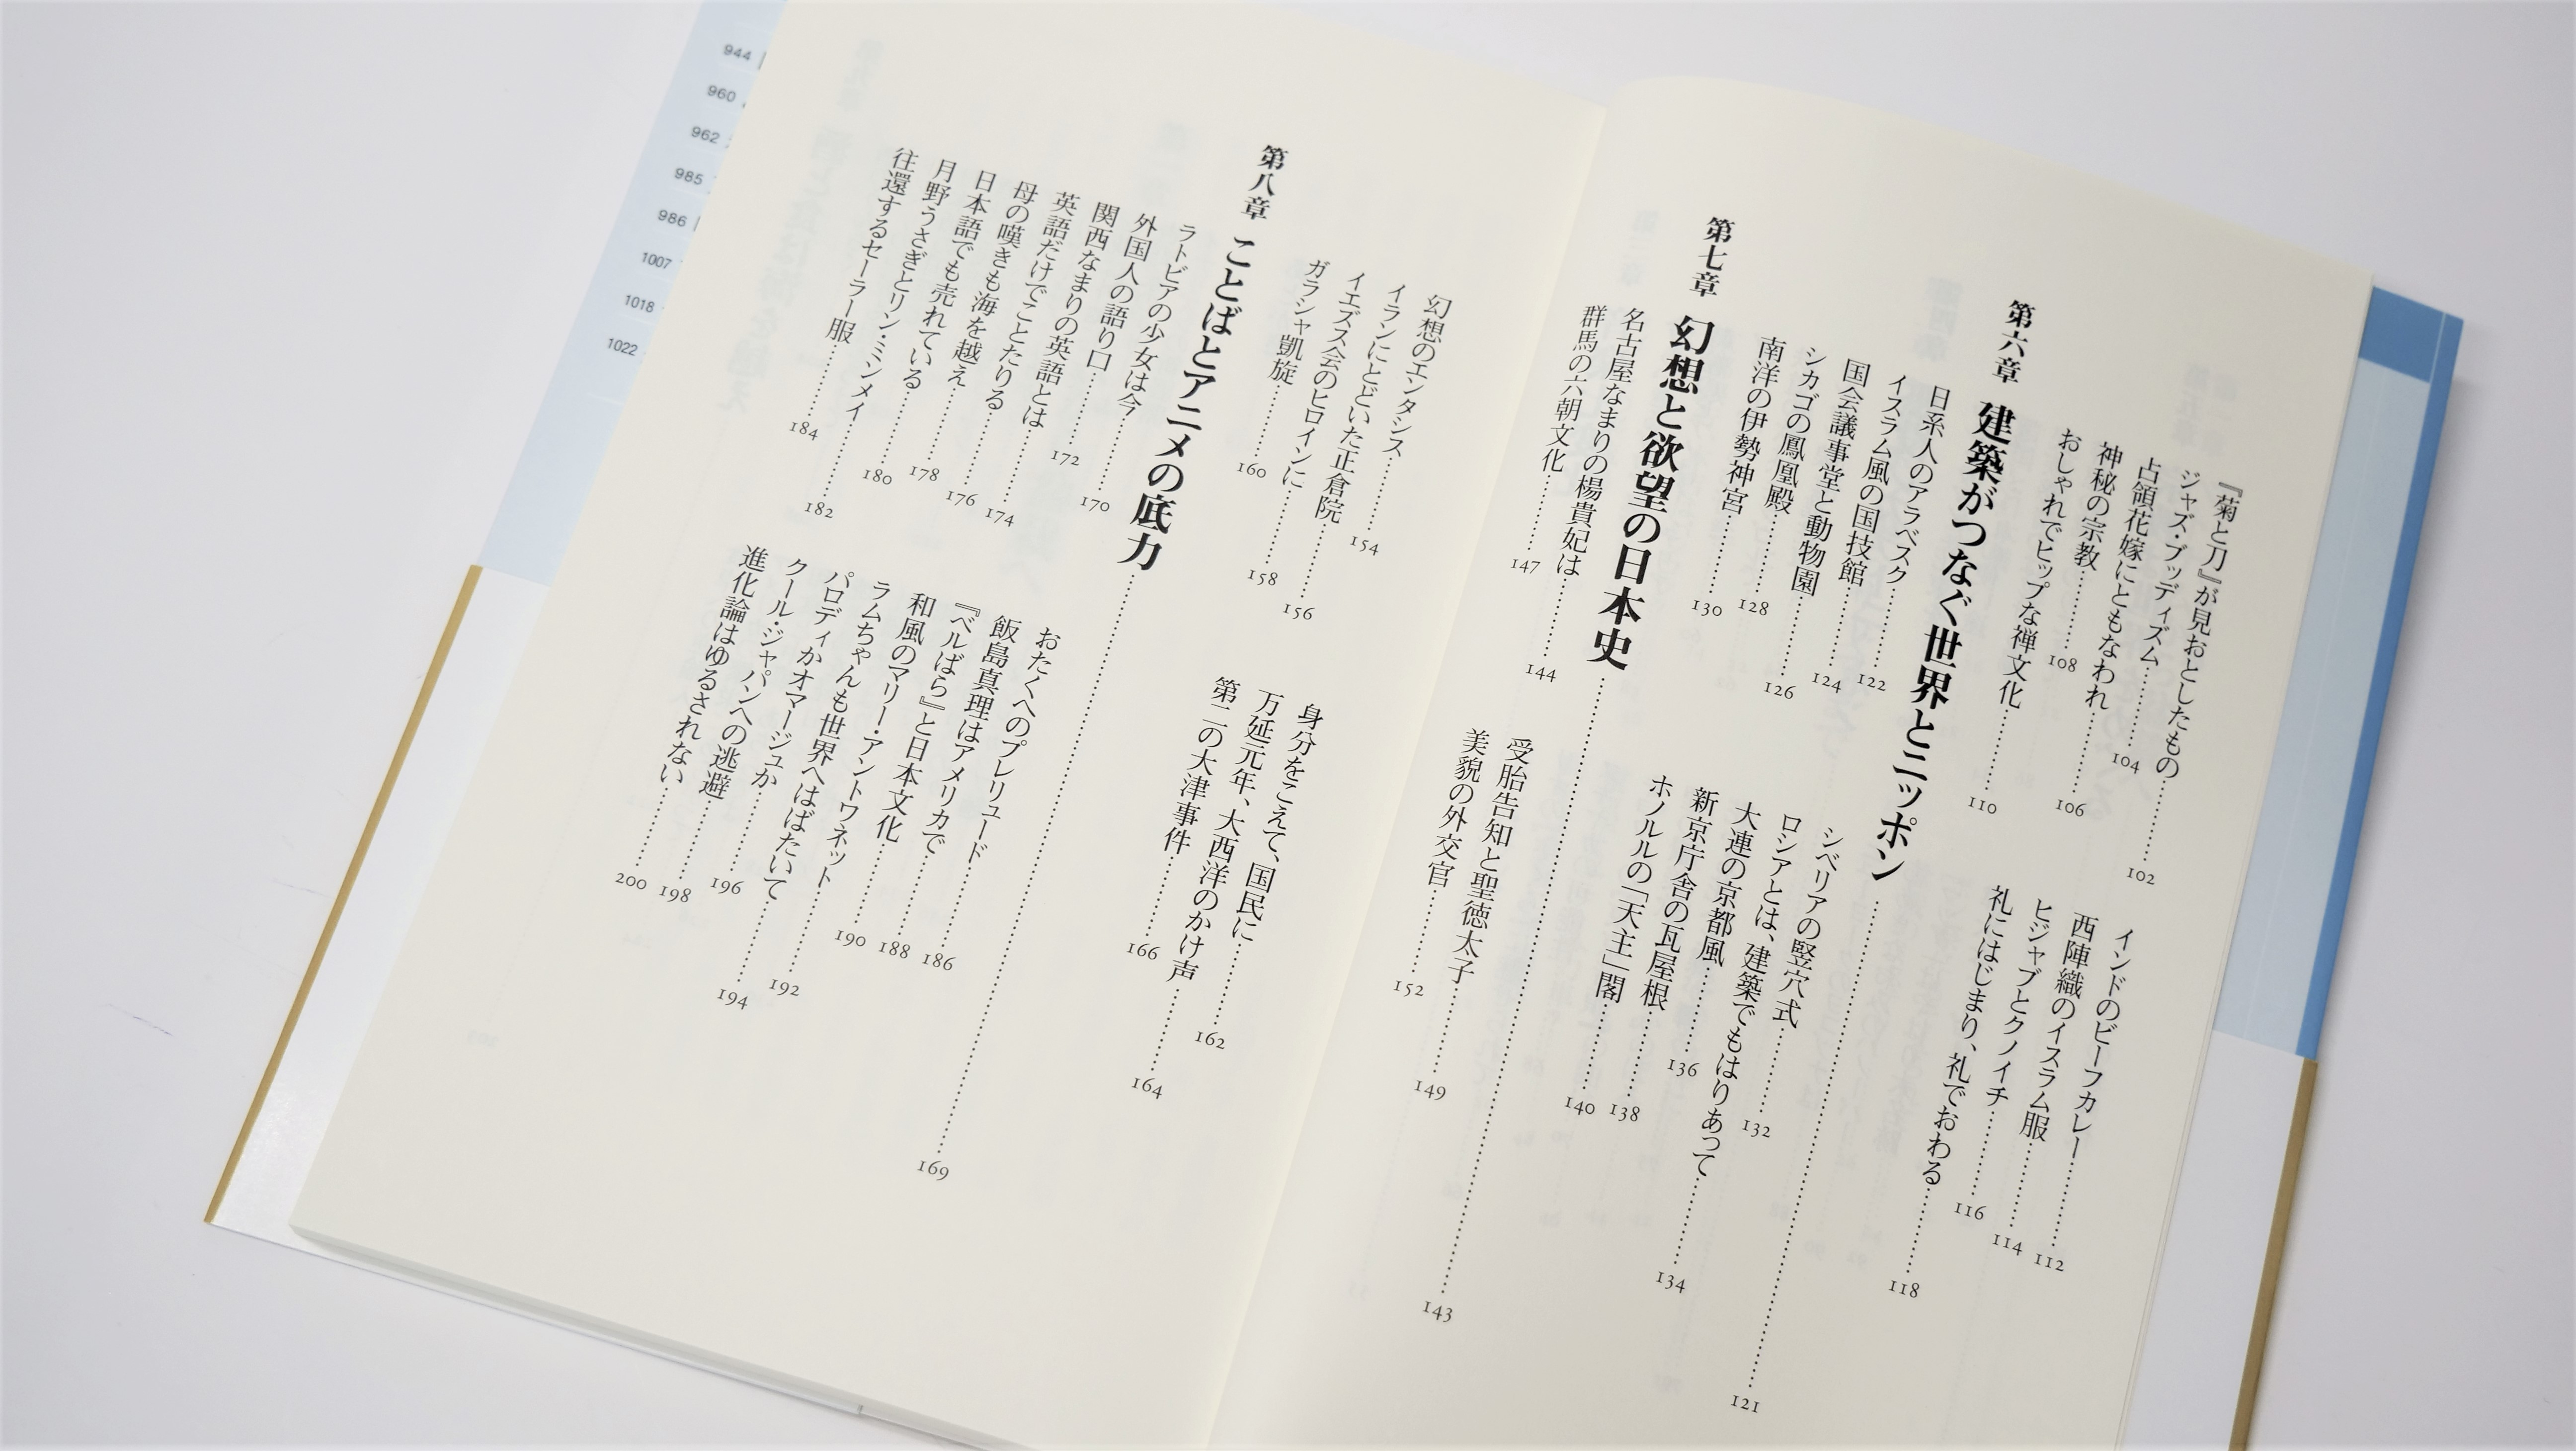 『菊と刀』が見おとしたもの……102
ジャズ・ブッディズム……104
占領花嫁にともなわれ……106
神秘の宗教……108
おしゃれでヒップな禅文化……110
インドのビーフカレー……112
西陣織のイスラム服……114
ヒジャブとクノイチ……116
礼にはじまり、礼でおわる……118
第六章 建築がつなぐ世界とニッポン……121
日系人のアラベスク……122
イスラム風の国技館……124
国会議事堂と動物園……126
シカゴの鳳凰殿……128
南洋の伊勢神宮……130
シベリアの竪穴式……132
ロシアとは、建築でもはりあって……134
大連の京都風……136
新京庁舎の瓦屋根……138
ホノルルの「天主」閣……140
第七章 幻想と欲望の日本史……143
名古屋なまりの楊貴妃は……144
群馬の六朝文化……147
受胎告知と聖徳太子……149
美貌の外交官……152
幻想のエンタシス……154
イランにとどいた正倉院……156
イエズス会のヒロインに……158
ガラシャ凱旋……160
身分をこえて、国民に……162
万延元年、大西洋のかけ声……164
第二の大津事件……166
第八章 ことばとアニメの底力……169
ラトビアの少女は今……170
外国人の語り口……172
関西なまりの英語とは……174
英語だけでことたりる……176
母の嘆きも海を越え……178
日本語でも売れている……180
月野うさぎとリン・ミンメイ……182
往還するセーラー服……184
おたくへのプレリュード……186
飯島真理はアメリカで……188
『ベルばら』と日本文化……190
和風のマリー・アントワネット……192
ラムちゃんも世界へはばたいて……194
パロディかオマージュか……196
クール・ジャパンへの逃避……198
進化論はゆるされない……200
944
960
962
985
986
1007
1018
1022